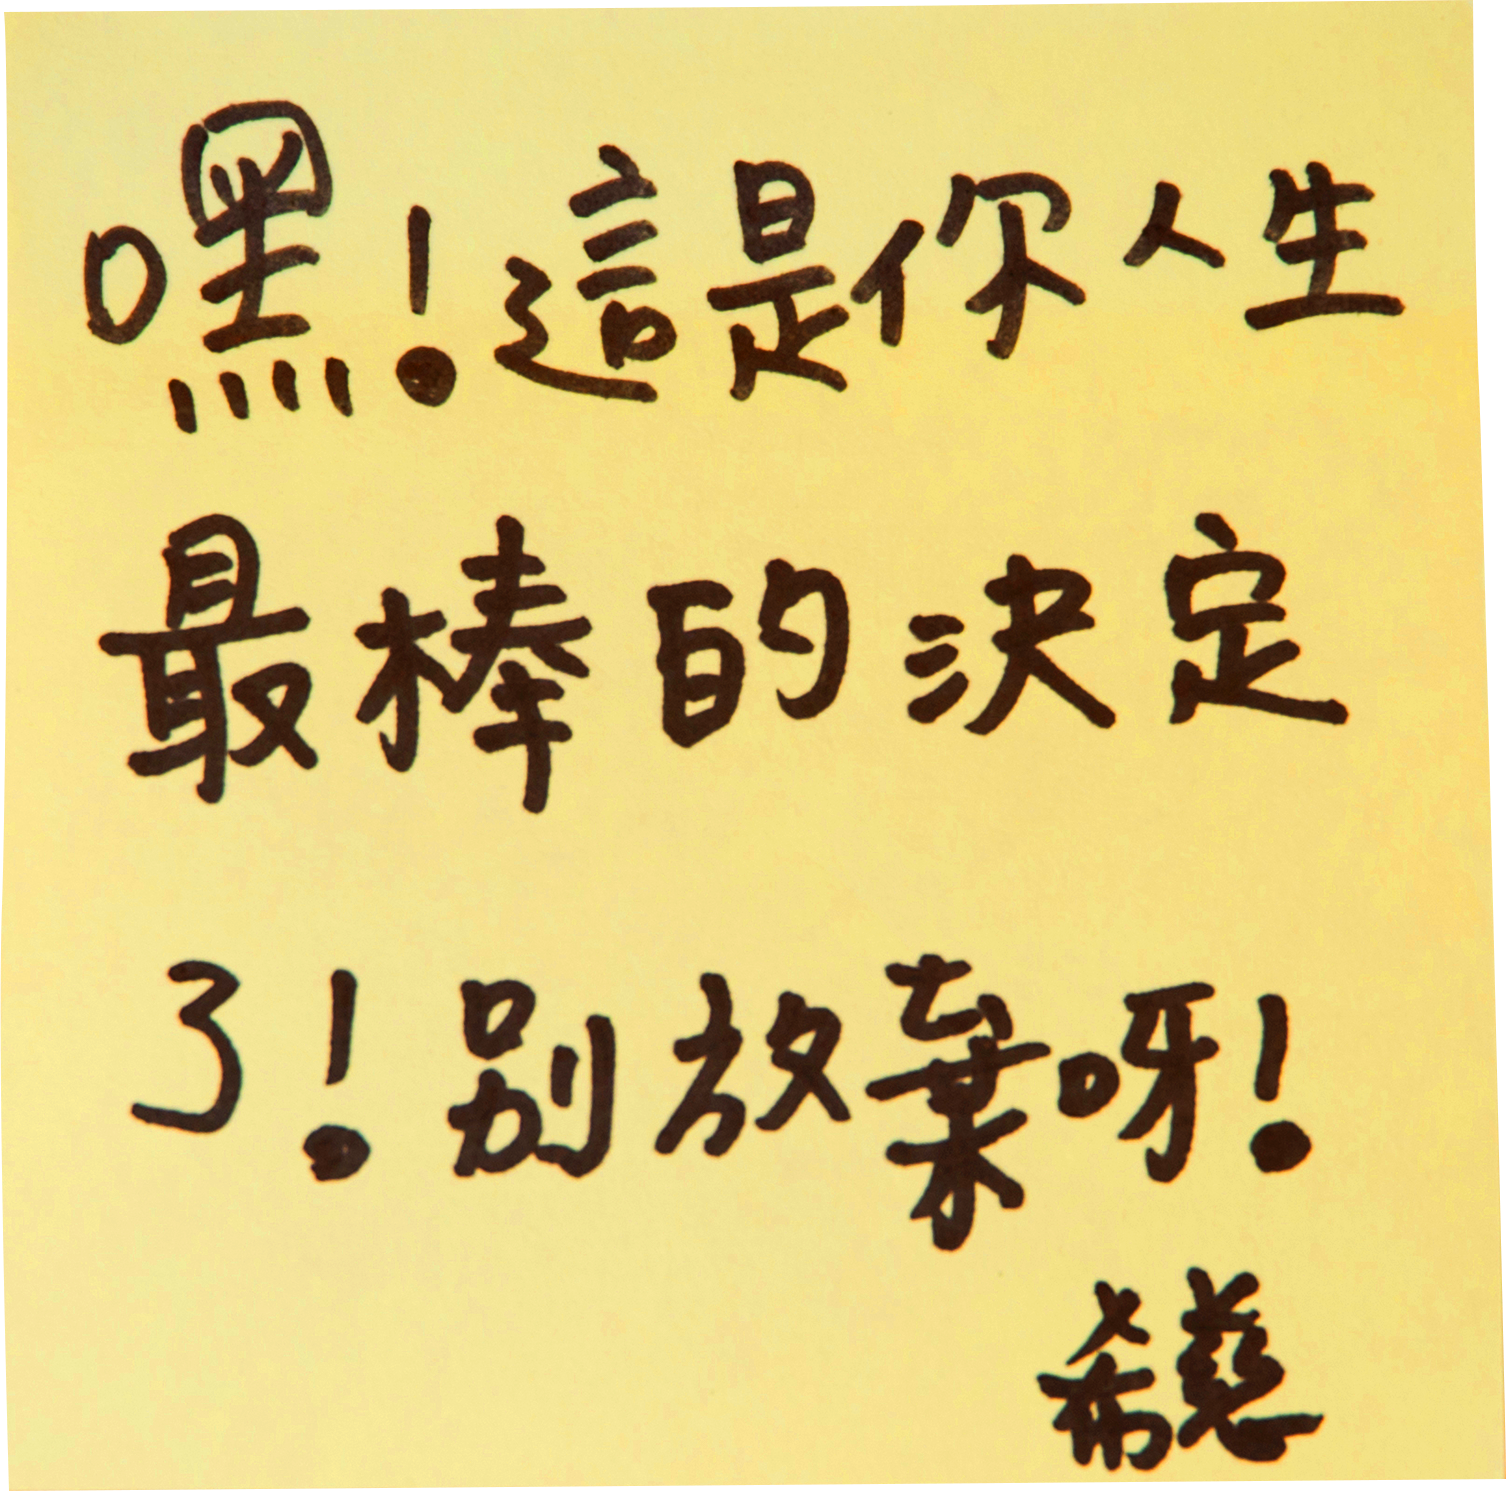 嘿!這是你人生
最棒的決定
了!別放棄呀!
希慈